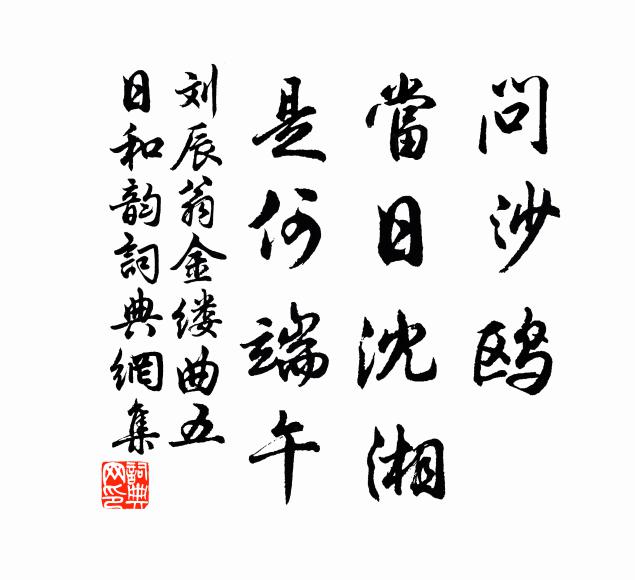 问沙鸥
當日沈湘
是何端午
刘辰翁金缕曲五
日和韵詞典網集
詞典网印